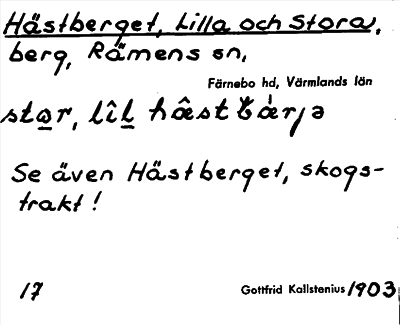 Hästberget, Lilla och Stora,
berg, Rämens sn,
Färnebo hd, Värmlands län
Se även Hästberget, skogs-
trakt!
17
Gottfrid Kallstenius 1903